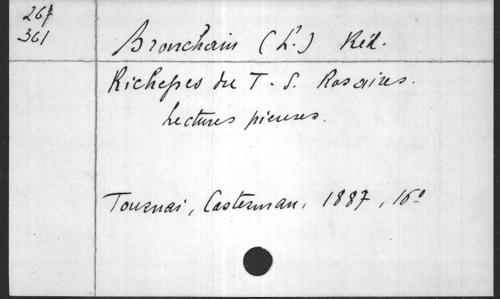 267
361
Bronchain (L.) Réd.
Richesses du T. S. Rosaires.
Lectures pieuses.
Tournai, Casterman, 1887, 16°